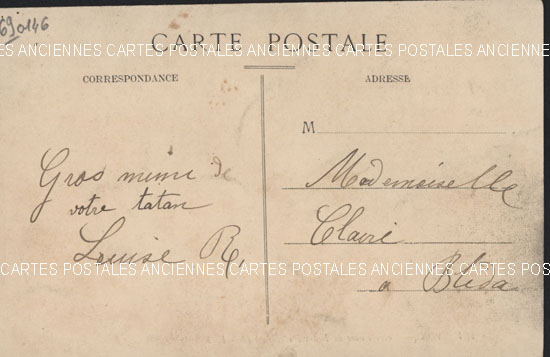 69 0146
CARTE POSTALE
CARTES POSTALES ANCIENNES CARTES POSTALES ANCIENNES CARTES POSTALES ANCIENNES
CORRESPONDANCE
ADRESSE
M
Gros mimi de
votre tatan
Louise R.
Mademoiselle
Claire
a Blida
CARTES POSTALES ANCIENNES CARTES POSTALES ANCIENNES CARTES POSTALES ANCIENNES